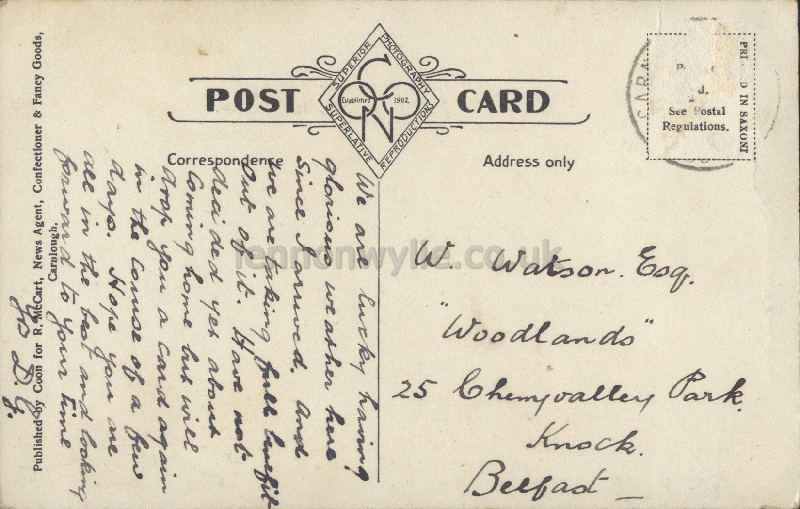 SUPERIOR PHOTOGRAPHY
SUPERLATIVE REPRODUCTIONS
Established 1902.
POST CARD
Correspondence
Address only
PRI D IN SAXONY
d.
See Postal
Regulations.
We are lucky having
glorious weather here
since I arrived. And
we are taking full benefit
out of it. Have not
decided yet about
coming home but will
drop you a card again
in the course of a few
days. Hope you are
all in the best and looking
forward to your time
Yrs D.G.
W Watson. Esq.
"Woodlands"
25 Cherryvalley Park.
Knock.
Belfast
Published by Coon for R. McCart, News Agent, Confectioner & Fancy Goods,
Carnlough.
lennonwylie.co.uk